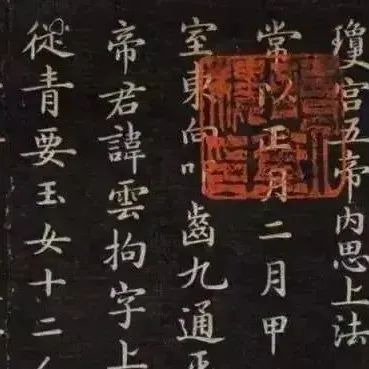 瓊宮五帝內思上法
常以正月二月甲
室東向叩齒九通平
帝君諱雲拘字上
從青要玉女十二人